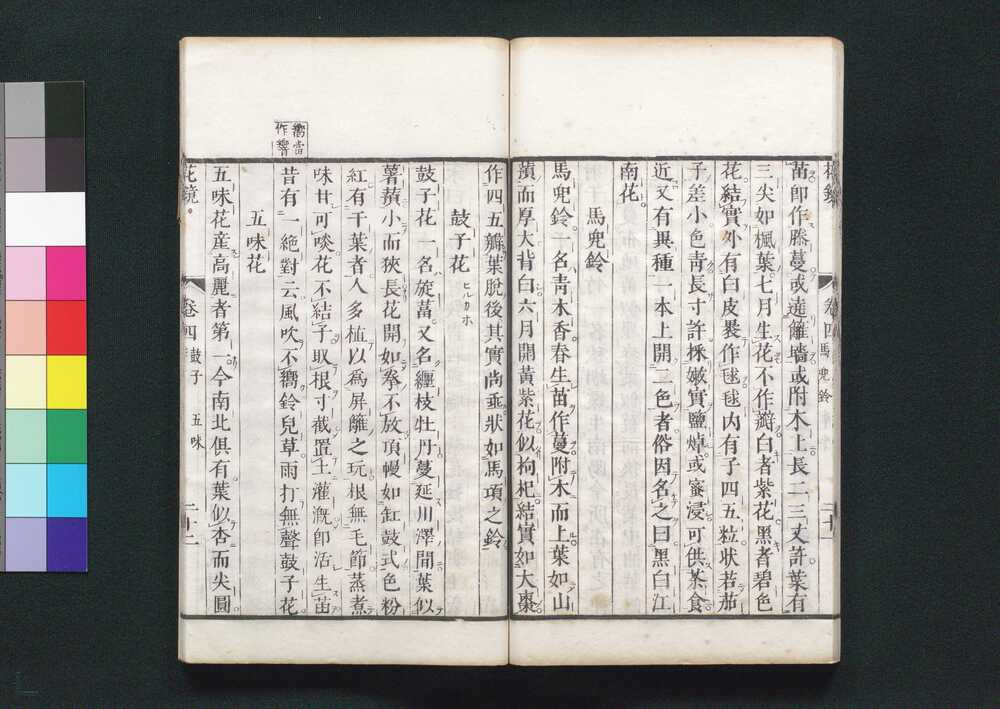 苗卽作籐蔓或遶籬墻或附木上長二三丈許葉有
三尖如楓葉七月生花不作瓣白者紫花黑者碧色
花結實外有白皮裹作毬毬内有子四五粒狀若茄
子差小色靑長寸許採嫩實鹽焯或蜜浸可供茶食
近又有異種一本上開二色者俗因名之曰黑白江
南花。
馬兜鈴
馬兜鈴一名靑木香春生苗作蔓附木而上葉如山
蕷而厚大背白六月開黃紫花似枸杞結實如大棗
作四五瓣葉脫後其實尚垂狀如馬項之鈴
鼓子花 ヒルカホ
鼓子花一名旋葍又名纏枝牡丹蔓延川澤間葉似
薯蕷小而狹長花開如拳不放頂幔如缸鼓式色粉
紅有千葉者人多植以爲屏籬之玩根無毛節蒸煮
味甘可啖花不結子取根寸截置土灌漑卽活生苗
昔有一絶對云風吹不嚮鈴兒草雨打無聲鼓子花
嚮當
作響
五味花
五味花產高麗者第一今南北俱有葉似杏而尖圓
花鏡
卷四 馬兜鈴
二十一
花鏡
卷四 鼓子 五味
二十二